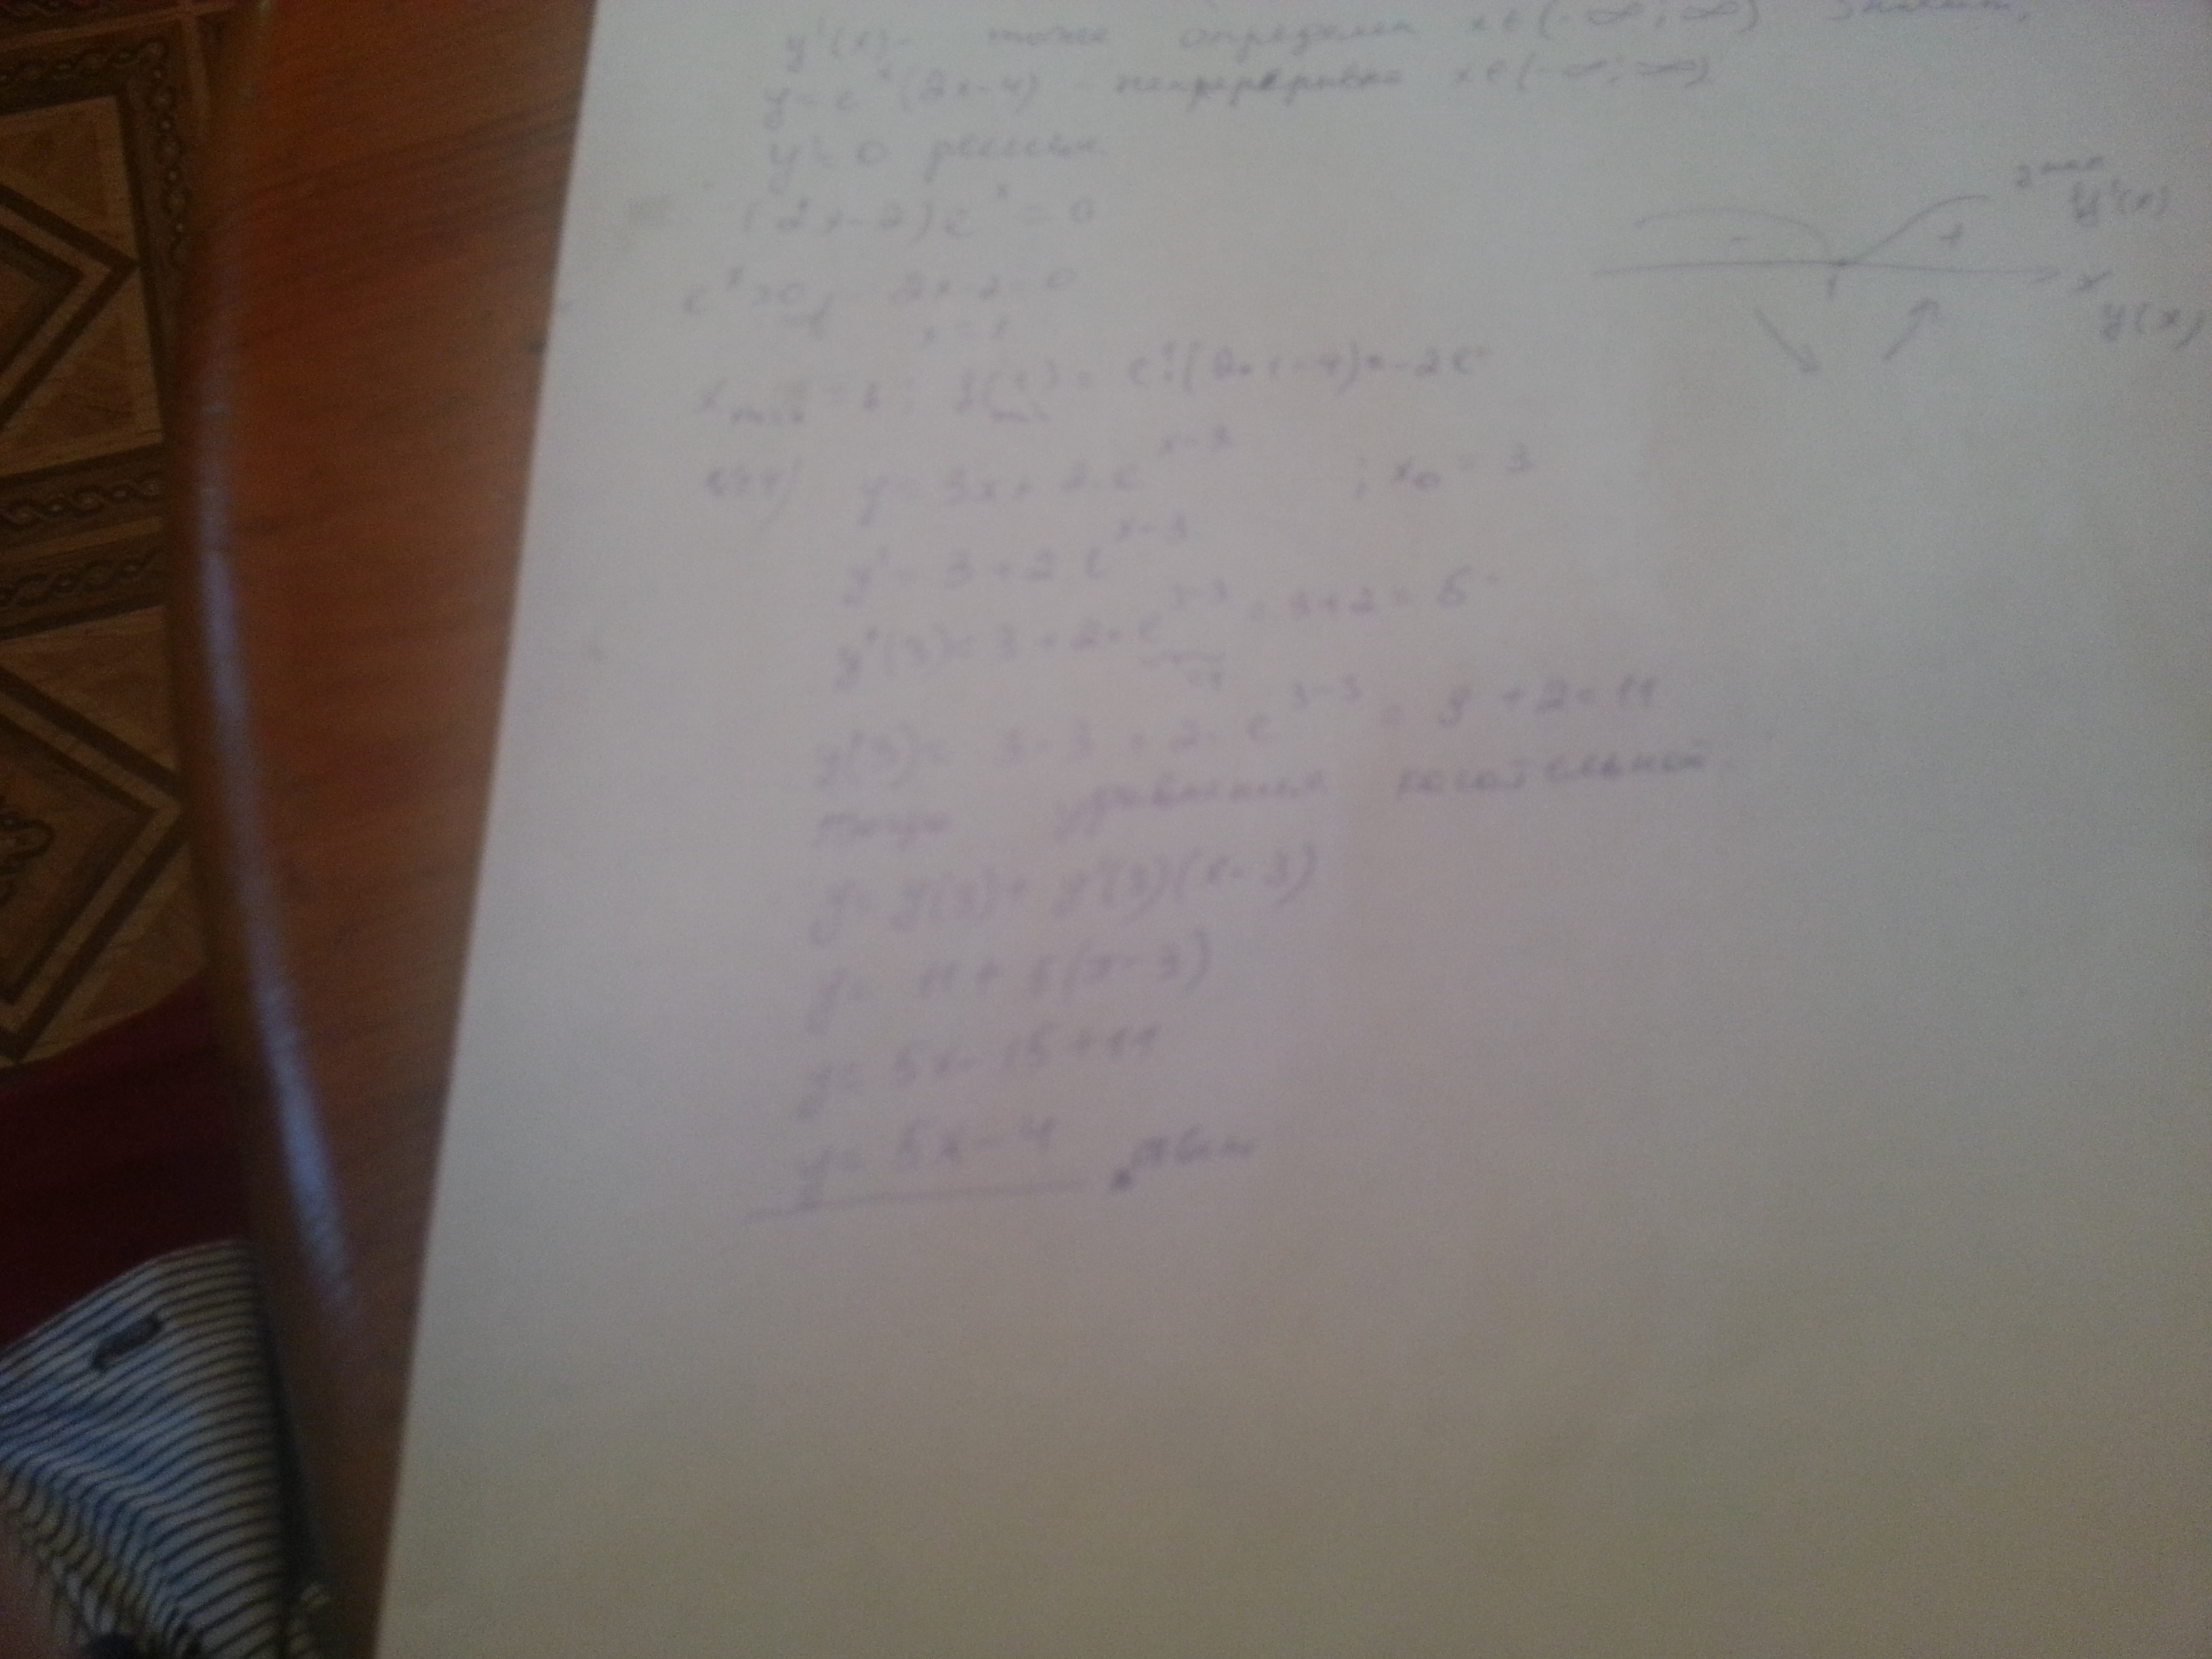 y'(x) - тоже определен x∈(-∞;∞)
y = e^x (2x-4) - непрерывна x∈(-∞;∞)
y' = 0 решим
(2x-2)e^x = 0
e^x>0, 2x-2=0
x=1
x min = 1; = e^1·(2·1-4) = -2e
y'(x)
- +
1 x
y(x)
y = 3x + 2·e^(x-3) ; x₀ = 3
y' = 3 + 2 e^(x-3)
y'(3) = 3 + 2·e^(3-3) = 3+2 = 5
=1
y(3) = 3·3 + 2·e^(3-3) = 9 + 2 = 11
тогда уравнения касательной
y = y(3) + y'(3)(x-3)
y = 11 + 5(x-3)
y = 5x - 15 + 11
y = 5x - 4 ответ